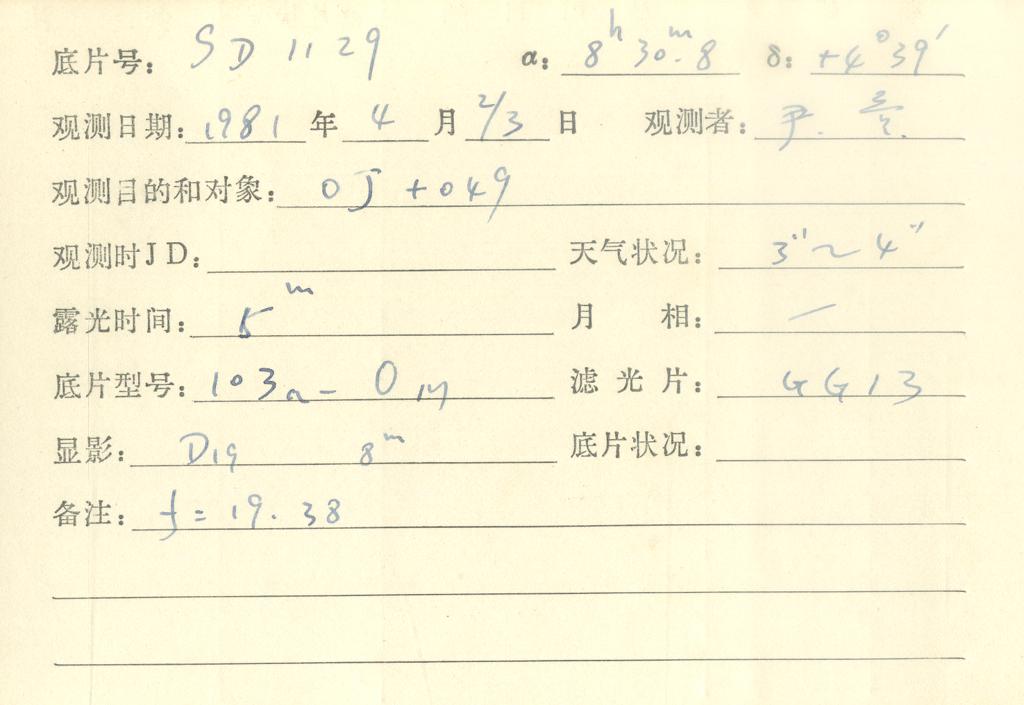 底片号: SD 1129 α: 8ʰ 30ᵐ.8 δ: +4°39′
观测日期: 1981 年 4 月 2/3 日 观测者: 尹.
观测目的和对象: OJ +049
观测时JD: 天气状况: 3″~4″
露光时间: 5ᵐ 月 相: —
底片型号: 103a-O 滤光片: GG13
显影: D19 8ᵐ 底片状况:
备注: f = 19.38